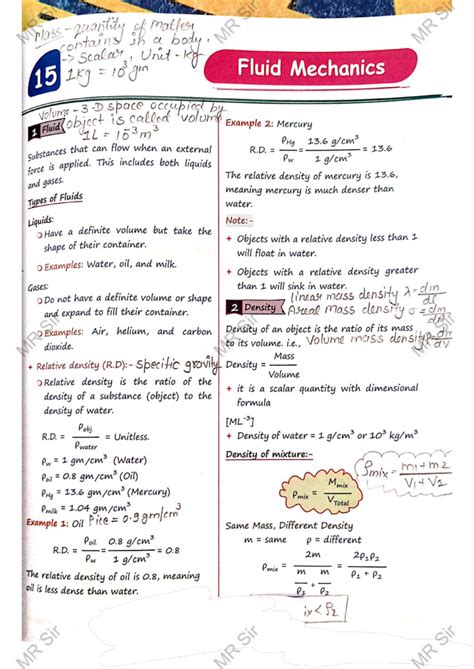 Mass - quantity of matter
contains in a body.
→ Scalar, Unit - Kg
1Kg = 10³ gm
15
Fluid Mechanics
Volume - 3-D space occupied by
object is called volume
1L = 10⁻³ m³
1 Fluid
Substances that can flow when an external
force is applied. This includes both liquids
and gases.
Types of Fluids
Liquids:
Have a definite volume but take the
shape of their container.
Examples: Water, oil, and milk.
Gases:
Do not have a definite volume or shape
and expand to fill their container.
Examples: Air, helium, and carbon
dioxide.
+ Relative density (R.D):- Specific gravity
Relative density is the ratio of the
density of a substance (object) to the
density of water.
R.D. = ρobj. / ρwater = Unitless.
ρw = 1 gm/cm³ (Water)
ρoil = 0.8 gm/cm³ (Oil)
ρHg = 13.6 gm/cm³ (Mercury)
ρmilk = 1.04 gm/cm³
ρice = 0.9 gm/cm³
Example 1: Oil
R.D. = ρoil / ρw = 0.8 g/cm³ / 1 g/cm³ = 0.8
The relative density of oil is 0.8, meaning
oil is less dense than water.
Example 2: Mercury
R.D. = ρHg / ρw = 13.6 g/cm³ / 1 g/cm³ = 13.6
The relative density of mercury is 13.6,
meaning mercury is much denser than
water.
Note:-
+ Objects with a relative density less than 1
will float in water.
+ Objects with a relative density greater
than 1 will sink in water.
2 Density
linear mass density λ = dm/dl
Areal mass density σ = dm/
Density of an object is the ratio of its mass
to its volume. i.e., Volume mass density ρ = dm/dV
Density = Mass / Volume
+ it is a scalar quantity with dimensional
formula
[ML⁻³]
+ Density of water = 1 g/cm³ or 10³ kg/m³
Density of mixture:-
ρmix = Mmix / VTotal
ρmix = m1+m2 / V1+V2
Same Mass, Different Density
m = same ρ = different
ρmix = 2m / (m/ρ1 + m/ρ2) = 2ρ1ρ2 / ρ1 + ρ2
MR Sir
MR Sir
MR Sir
MR Sir
MR Sir
MR Sir
MR Sir
MR Sir
MR Sir
MR Sir
MR Sir
MR Sir